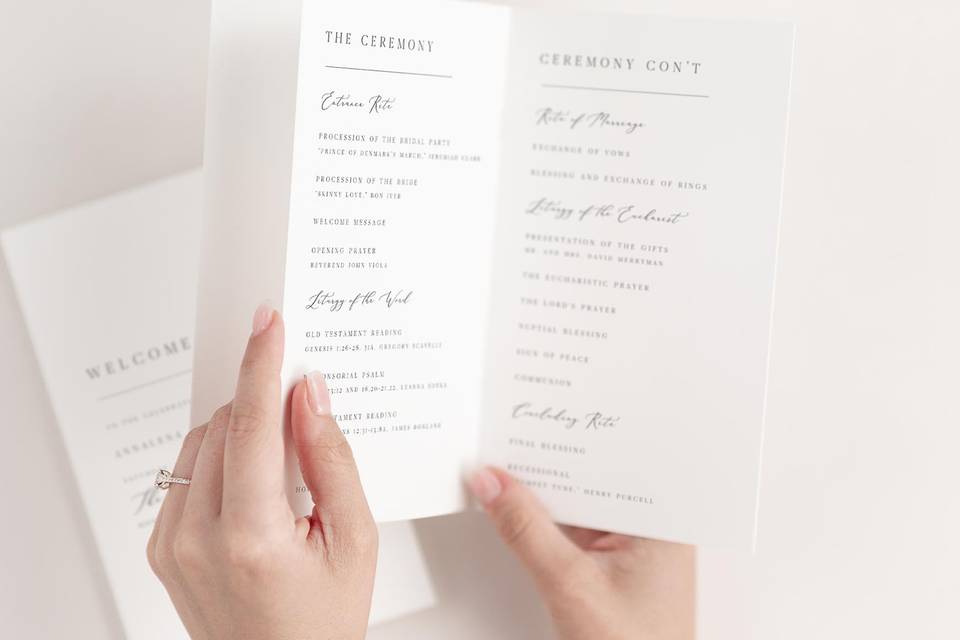 THE CEREMONY
Entrance Rite
PROCESSION OF THE BRIDAL PARTY
"PRINCE OF DENMARK'S MARCH," JEREMIAH CLARK
PROCESSION OF THE BRIDE
"SKINNY LOVE," BON IVER
WELCOME MESSAGE
OPENING PRAYER
REVEREND JOHN VIOLA
Liturgy of the Word
OLD TESTAMENT READING
GENESIS 1:26-28, 31A, GREGORY SCAVELLI
ONSORIAL PSALM
AND 20-21.22, LEANNA
TAMENT READING
12:31-13:8A, JAMES
HO
CEREMONY CON'T
Rite of Marriage
EXCHANGE OF VOWS
BLESSING AND EXCHANGE OF RINGS
Liturgy of the Eucharist
PRESENTATION OF THE GIFTS
MR. AND MRS. DAVID MERRYMAN
THE EUCHARISTIC PRAYER
THE LORD'S PRAYER
NUPTIAL BLESSING
SIGN OF PEACE
COMMUNION
Concluding Rite
FINAL BLESSING
RECESSIONAL
TUNE," HENRY PURCELL
WELCOME
TO THE CELEBRAT
ANNALENA